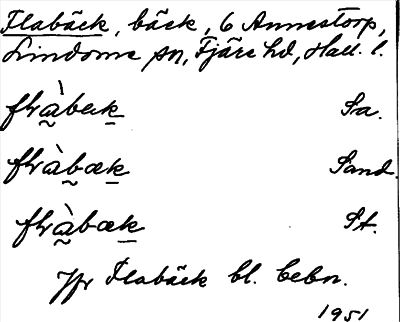 Flabäck, bäck, 6 Annestorp,
Lindome sn, Fjäre hd, Hall. l.
flrà̰bek Sa.
flrà̰bæk Sand.
flrà̰bæk St.
Jfr Flabäck bl. bebn.
1951